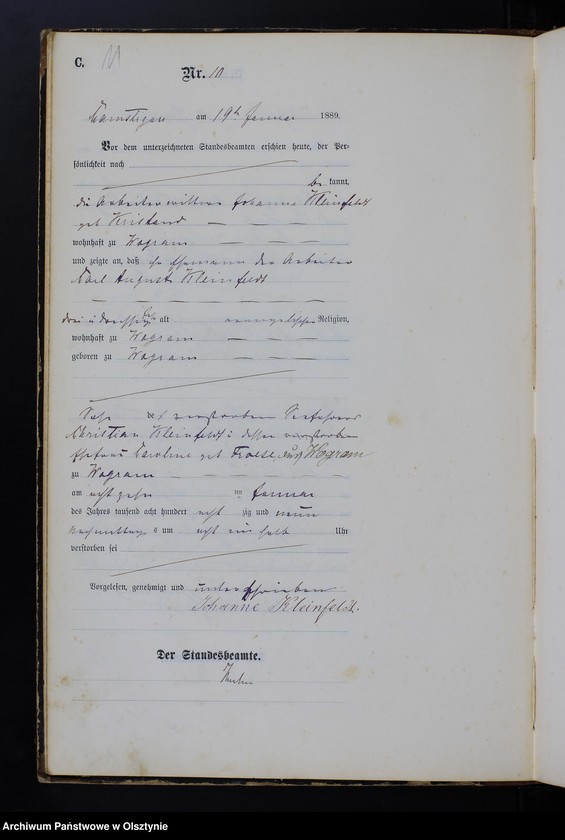 C.
11
Nr. 10
am 19t Januar 1889.
Vor dem unterzeichneten Standesbeamten erschien heute, der Per-
sönlichkeit nach
be kannt,
die Arbeiterwittwe Johanna Kleinfeldt
geb Kristand
wohnhaft zu Wogram
und zeigte an, daß ihr Ehemann der Arbeiter
Carl August Kleinfeldt
drei u dreißig alt evangelischer Religion,
wohnhaft zu Wogram
geboren zu Wogram
Sohn des verstorben
Christian Kleinfeldt u dessen verstorben
Ehefrau Caroline geb Froese aus Wogram
zu Wogram
am acht zehn ten Januar
des Jahres tausend acht hundert acht zig und neun
Nachmittags um acht ein halb Uhr
verstorben sei
Vorgelesen, genehmigt und unterschrieben
Johanne Kleinfeldt.
Der Standesbeamte.
Archiwum Państwowe w Olsztynie